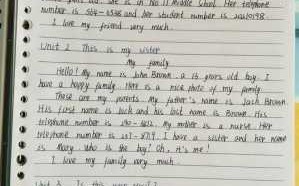 She is in No. 11 Middle School. Her telephone
number is 564-6598 and her student number is
I love my friend very much.
Unit 2 This is my sister
My family
Hello! My name is John Brown. a 15 years old boy. I
have a happy family. Here is a nice photo of my family.
These are my parents. My father's name is Jack Brown.
His first name is Jack and his last name is Brown. His
telephone number is My mother is a nurse. Her
telephone number is I have a sister and her name
is Mary. Who is the boy? Oh, it's me!
I love my family very much.